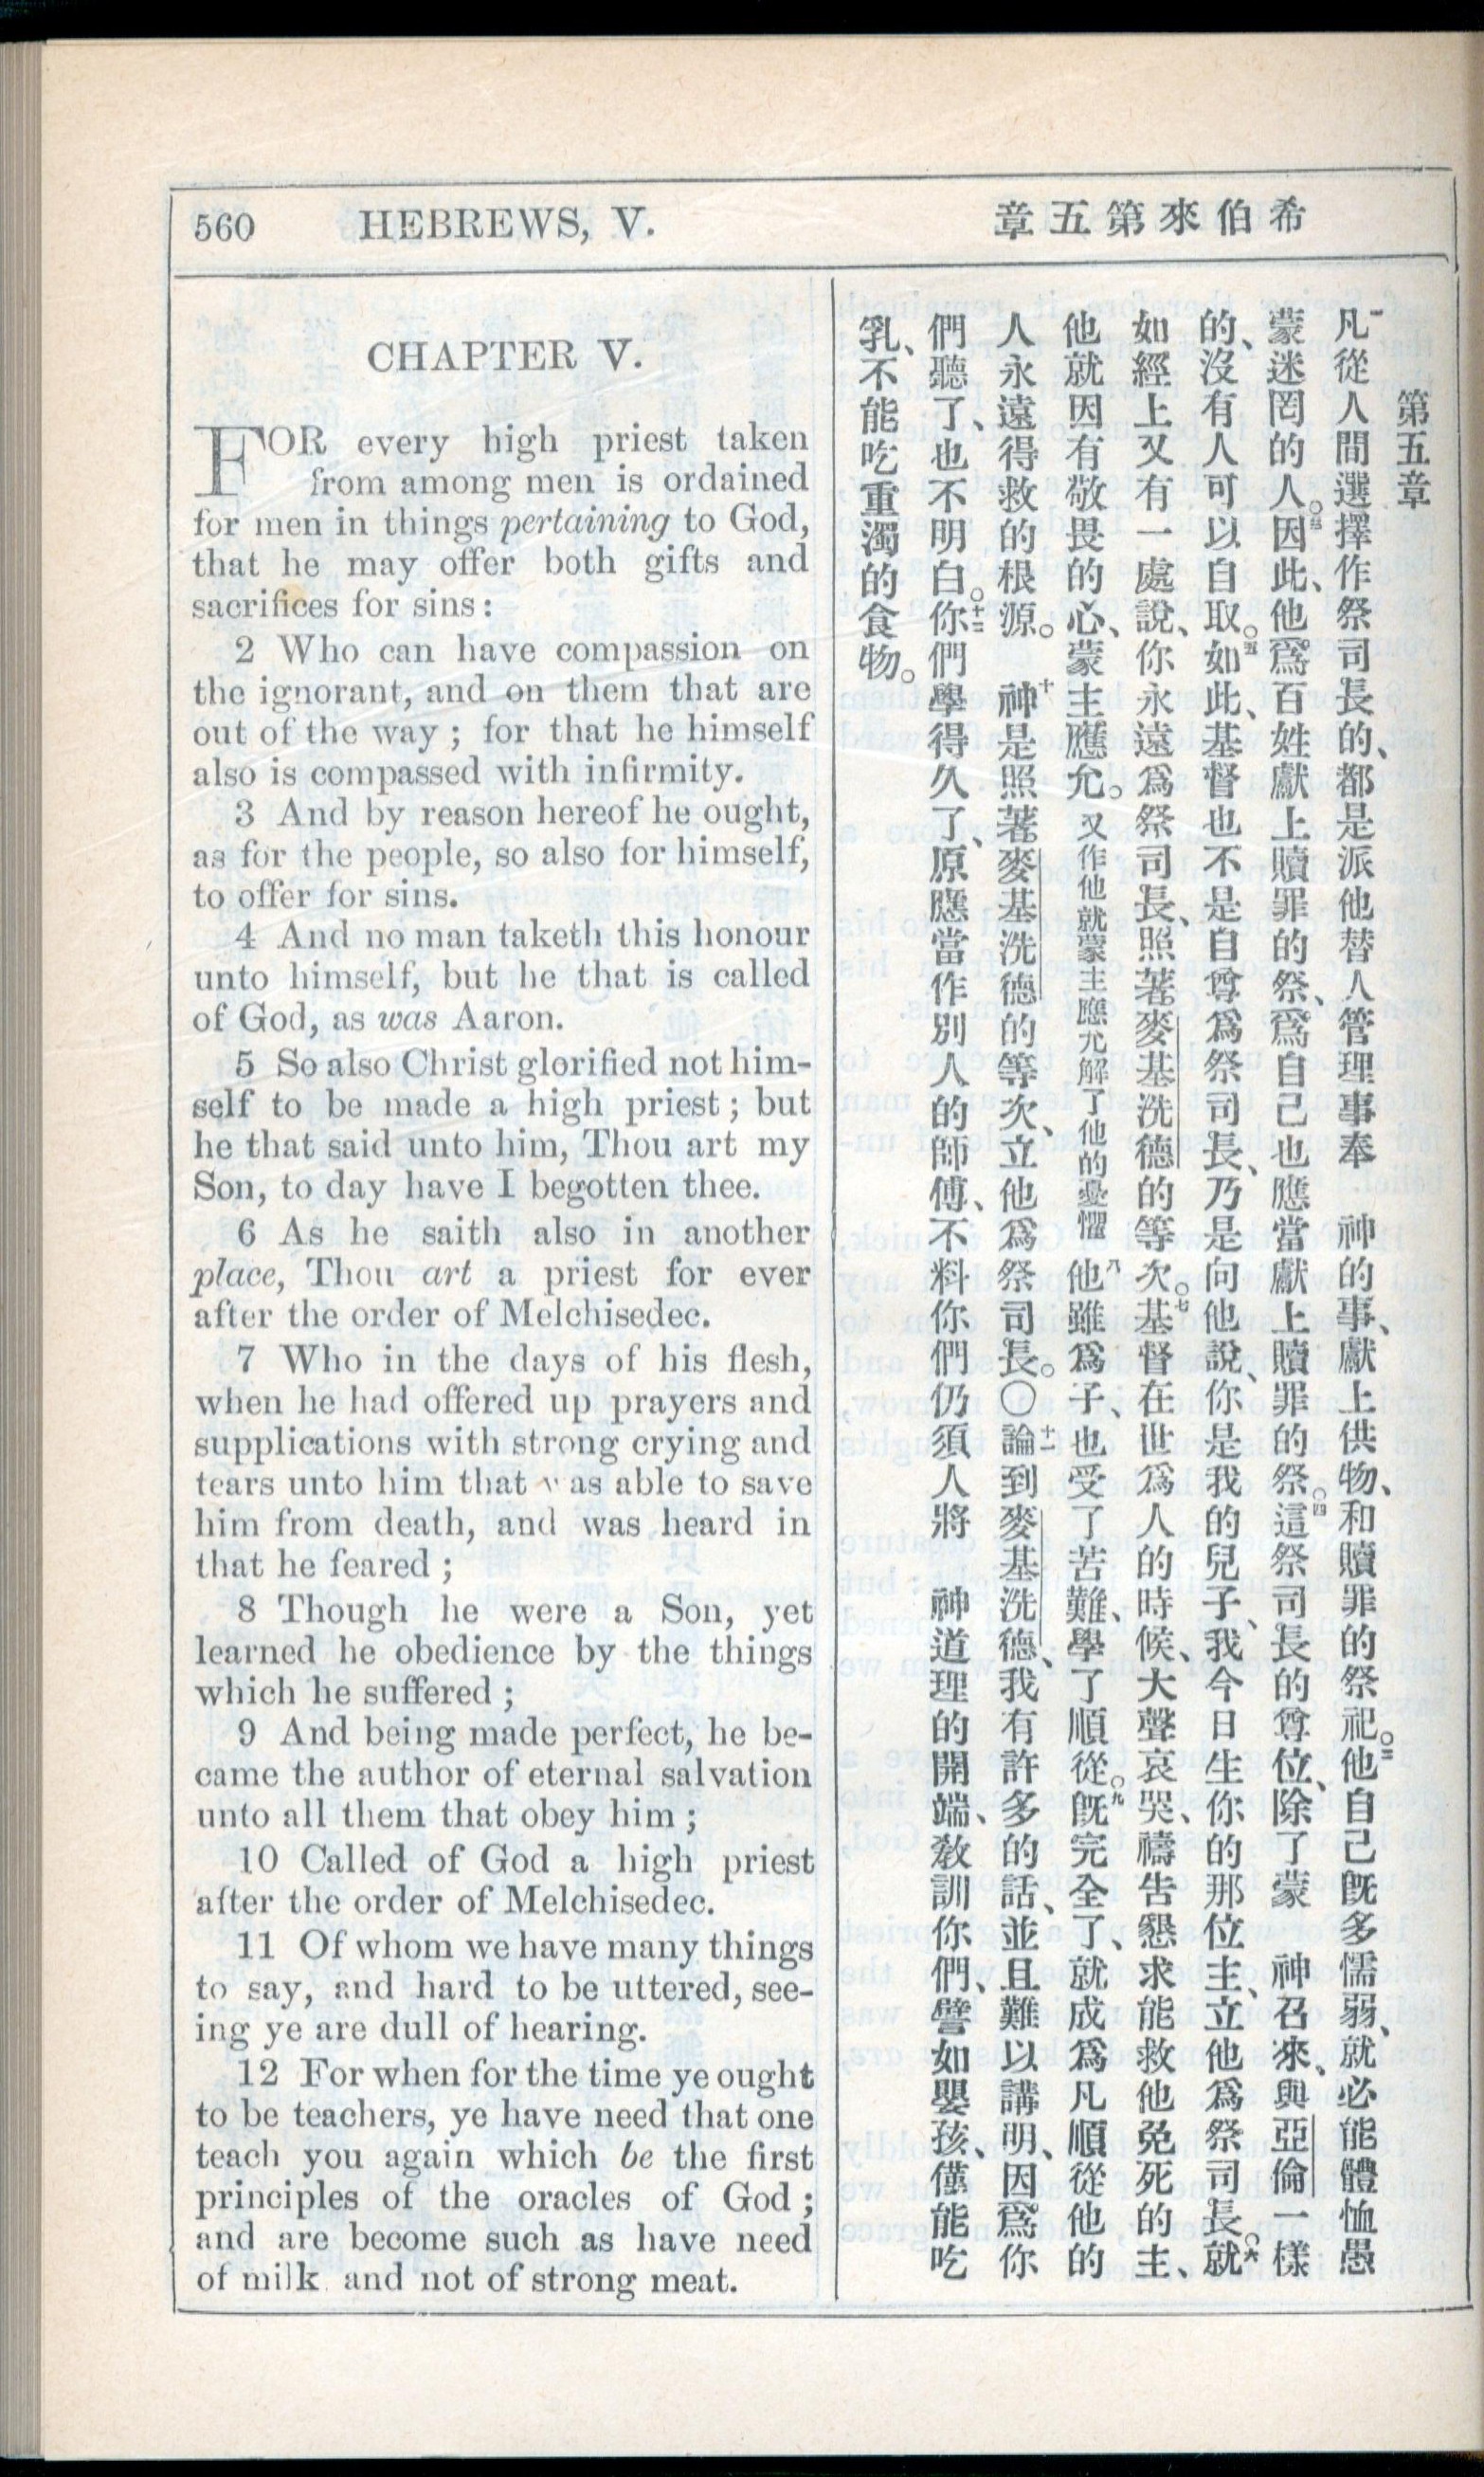 560 HEBREWS, V.
希伯來第五章
CHAPTER V.
FOR every high priest taken
from among men is ordained
for men in things pertaining to God,
that he may offer both gifts and
sacrifices for sins:
2 Who can have compassion on
the ignorant, and on them that are
out of the way; for that he himself
also is compassed with infirmity.
3 And by reason hereof he ought,
as for the people, so also for himself,
to offer for sins.
4 And no man taketh this honour
unto himself, but he that is called
of God, as was Aaron.
5 So also Christ glorified not him-
self to be made a high priest; but
he that said unto him, Thou art my
Son, to day have I begotten thee.
6 As he saith also in another
place, Thou art a priest for ever
after the order of Melchisedec.
7 Who in the days of his flesh,
when he had offered up prayers and
supplications with strong crying and
tears unto him that was able to save
him from death, and was heard in
that he feared;
8 Though he were a Son, yet
learned he obedience by the things
which he suffered;
9 And being made perfect, he be-
came the author of eternal salvation
unto all them that obey him;
10 Called of God a high priest
after the order of Melchisedec.
11 Of whom we have many things
to say, and hard to be uttered, see-
ing ye are dull of hearing.
12 For when for the time ye ought
to be teachers, ye have need that one
teach you again which be the first
principles of the oracles of God;
and are become such as have need
of milk and not of strong meat.
第五章
一凡從人間選擇作祭司長的、都是派他替人管理事奉 神的事、獻上供物、和贖罪的祭祀。二他自己既多懦弱、就必能體恤愚
蒙迷罔的人。三因此、他爲百姓獻上贖罪的祭、爲自己也應當獻上贖罪的祭。四這祭司長的尊位、除了蒙 神召來、與亞倫一樣
的、沒有人可以自取。五如此、基督也不是自尊爲祭司長、乃是向他說、你是我的兒子、我今日生你的那位主、立他爲祭司長。六就
如經上又有一處說、你永遠爲祭司長、照著麥基洗德的等次。七基督在世爲人的時候、大聲哀哭、禱告懇求能救他免死的主、
他就因有敬畏的心、蒙主應允。又作他就蒙主應允解了他的憂懼 八他雖爲子、也受了苦難、學了順從。九既完全了、就成爲凡順從他的
人永遠得救的根源。 十神是照著麥基洗德的等次、立他爲祭司長。〇十一論到麥基洗德、我有許多的話、並且難以講明、因爲你
們聽了、也不明白。十二你們學得久了、原應當作別人的師傅、不料你們仍須人將 神道理的開端、敎訓你們、譬如嬰孩、僅能吃
乳、不能吃重濁的食物。